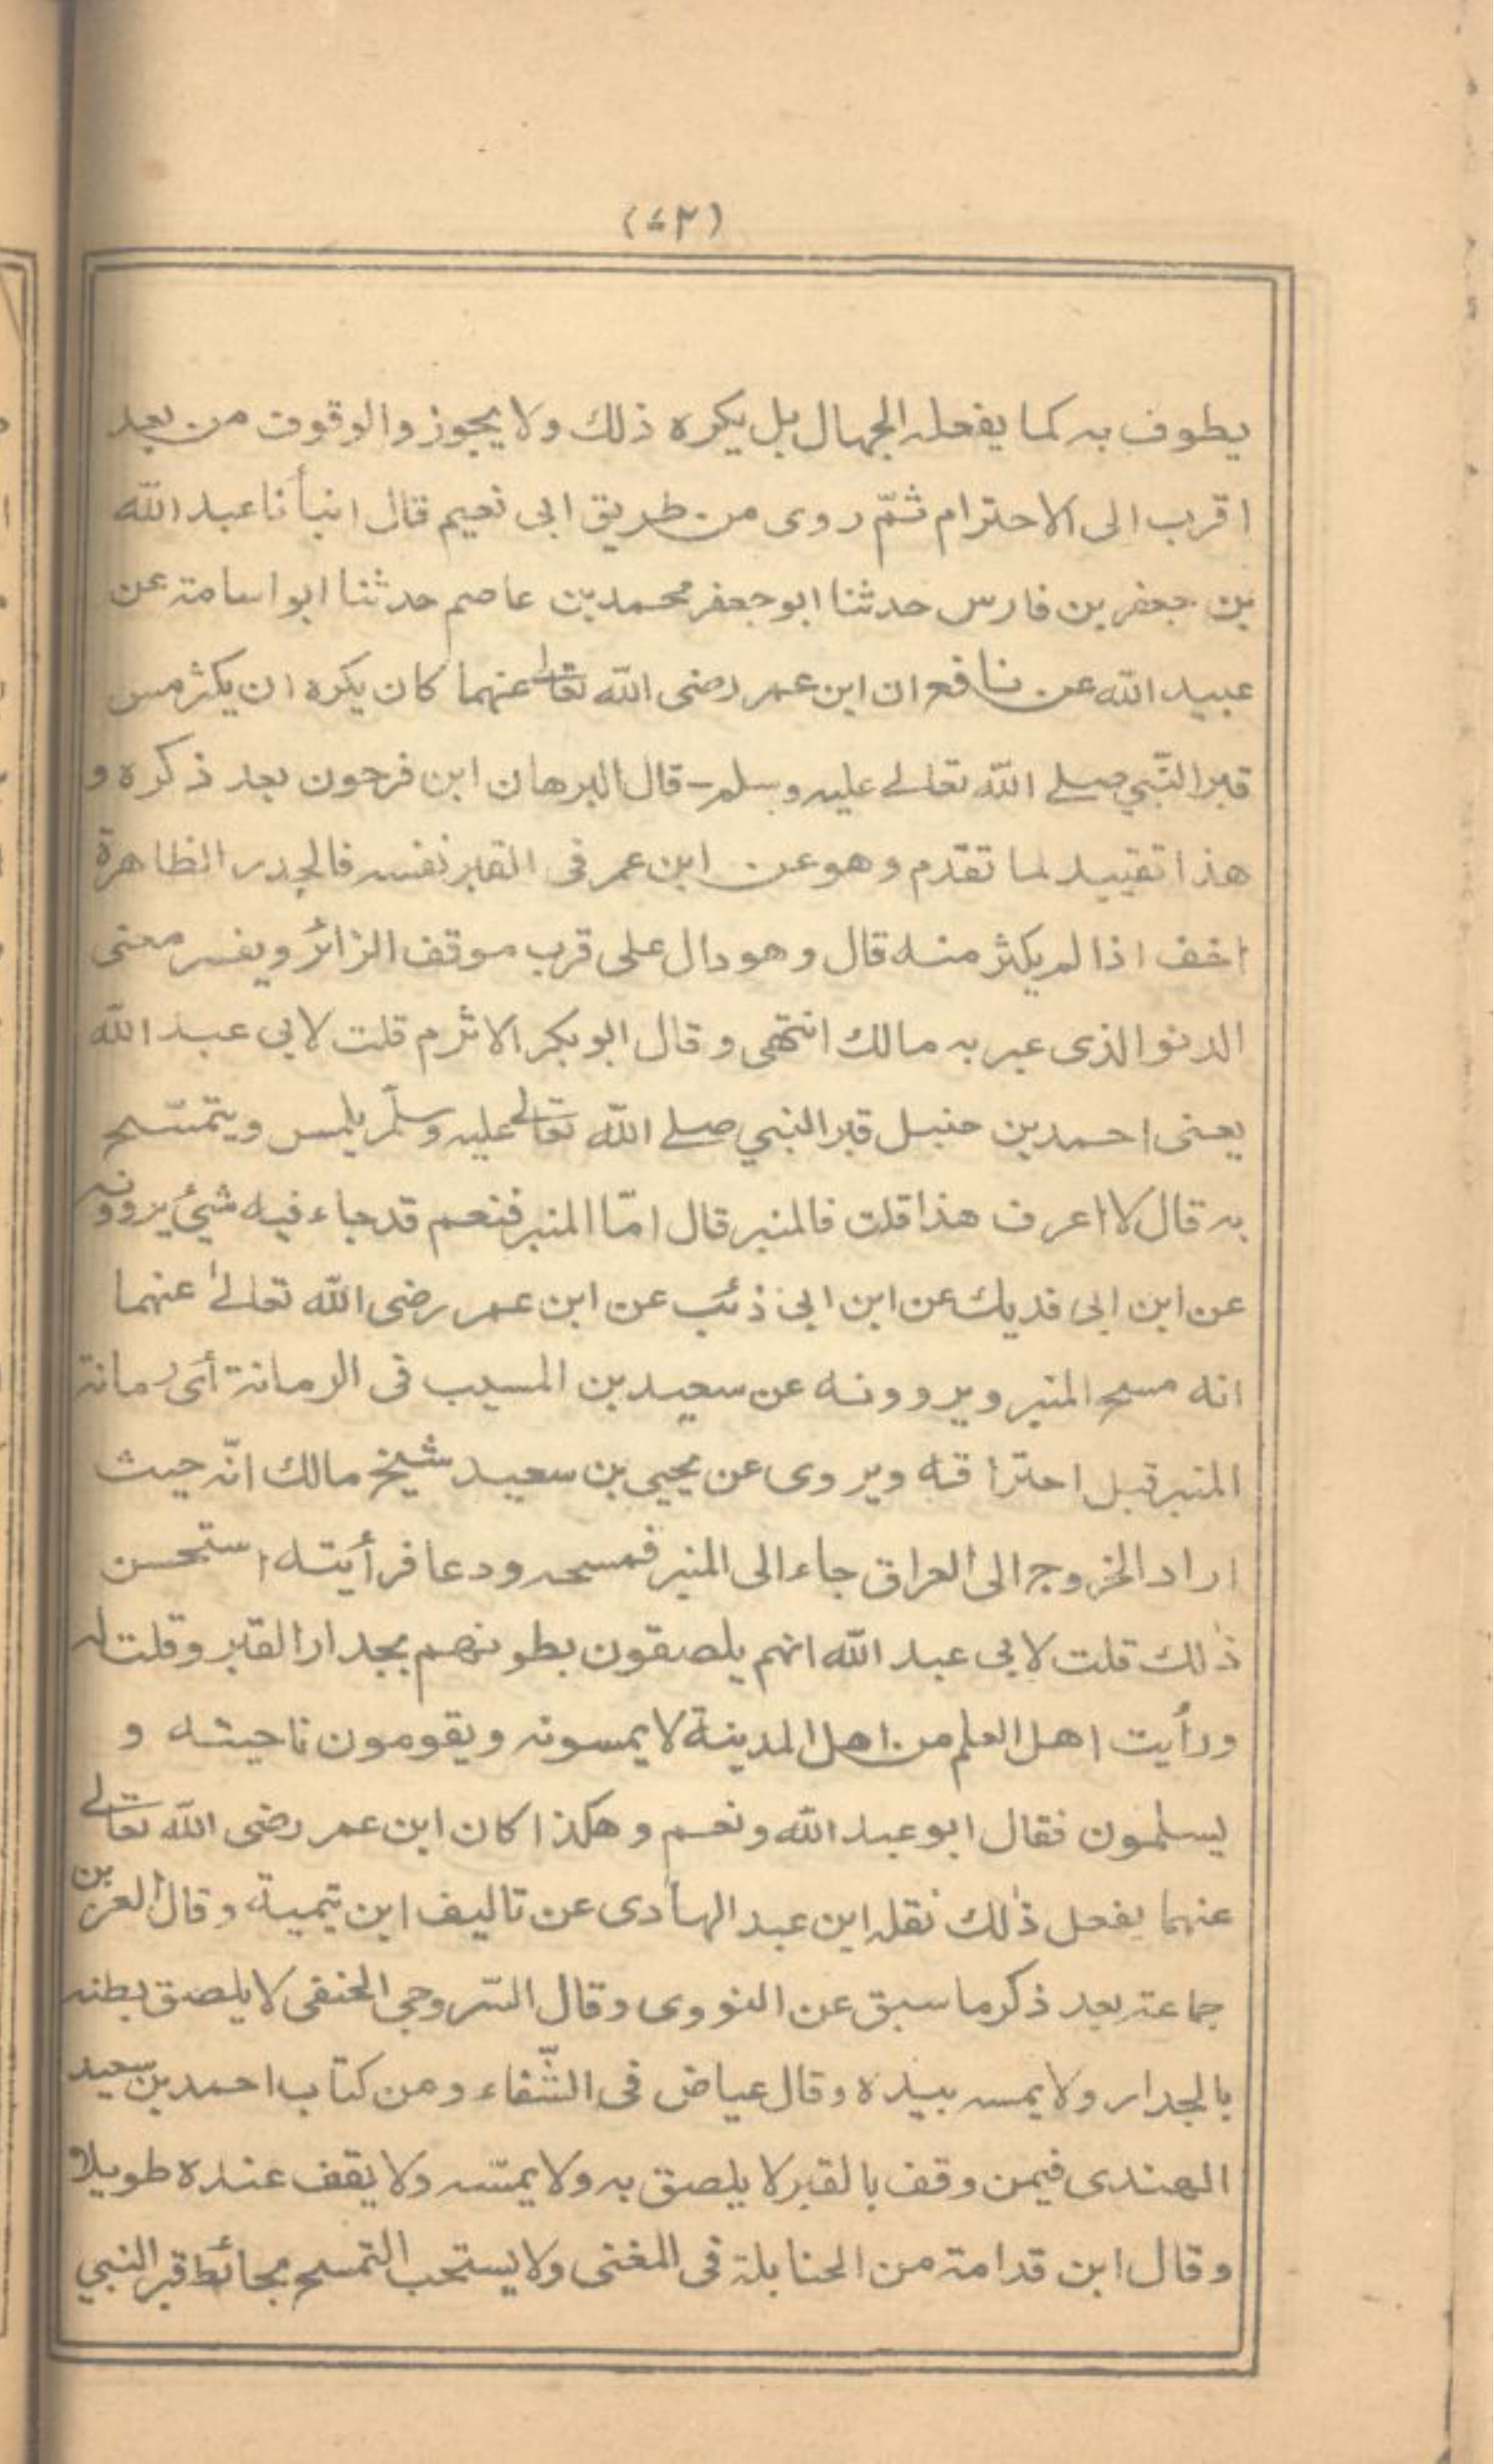 (٤٣)
يطوف به كما يفعله الجهال بل يكره ذلك ولا يجوز والوقوف من بعد
اقرب الى الاحترام ثمّ روى من طريق ابى نعيم قال انبأنا عبد الله
بن جعفر بن فارس حدثنا ابو جعفر محمد بن عاصم حدثنا ابو اسامة عن
عبيد الله عن نافع ان ابن عمر رضى الله تعالى عنهما كان يكره ان يكثر مس
قبر النّبي صلے الله تعالے عليه وسلم - قال البرهان ابن فرحون بعد ذكره و
هذا تقييد لما تقدّم وهو عن ابن عمر فى القبر نفسه فالجدر الظاهرة
اخف اذا لم يكثر منه قال وهو دال على قرب موقف الزائر ويفسر معنى
الدنو الذى عبر به مالك انتهى وقال ابو بكر الاثرم قلت لابى عبد الله
يعنى احمد بن حنبل قبر النبي صلے الله تعالے عليه وسلّم يلمس ويتمسّح
به قال لا اعرف هذا قلت فالمنبر قال امّا المنبر فنعم قد جاء فيه شيئ يروونه
عن ابن ابى فديك عن ابن ابى ذئب عن ابن عمر رضى الله تعالےٰ عنهما
انه مسح المنبر ويروونه عن سعيد بن المسيب فى الرمانة أى رمانة
المنبر قبل احتراقه ويروى عن يحيى بن سعيد شيخ مالك انّه حيث
اراد الخروج الى العراق جاء الى المنبر فمسحه ودعا فرأيته استحسن
ذٰلك قلت لابى عبد الله انهم يلصقون بطونهم بجدار القبر وقلت له
ورأيت اهل العلم من اهل المدينة لا يمسونه ويقومون ناحيته و
يسلمون فقال ابو عبد الله ونعم وهكذا كان ابن عمر رضى الله تعالے
عنهما يفعل ذٰلك نقله ابن عبد الهادى عن تاليف ابن تيمية وقال العز بن
جماعة بعد ذكر ما سبق عن النووى وقال السّروجى الحنفى لا يلصق بطنه
بالجدار ولا يمسه بيده وقال عياض فى الشّفاء ومن كتاب احمد بن سعيد
الهندى فيمن وقف بالقبر لا يلصق به ولا يمسّه ولا يقف عنده طويلا
وقال ابن قدامة من الحنابلة فى المغنى ولا يستحب التمسح بحائط قبر النبي